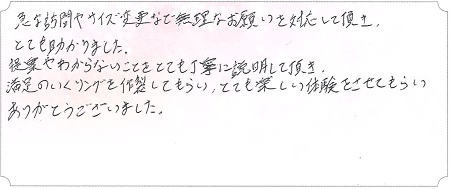 急な訪問やサイズ変更など無理なお願いを対応して頂き、
とても助かりました。
提案やわからないことをとても丁寧に説明して頂き、
満足のいくリングを作製してもらい、とても楽しい体験をさせてもらい
ありがとうございました。